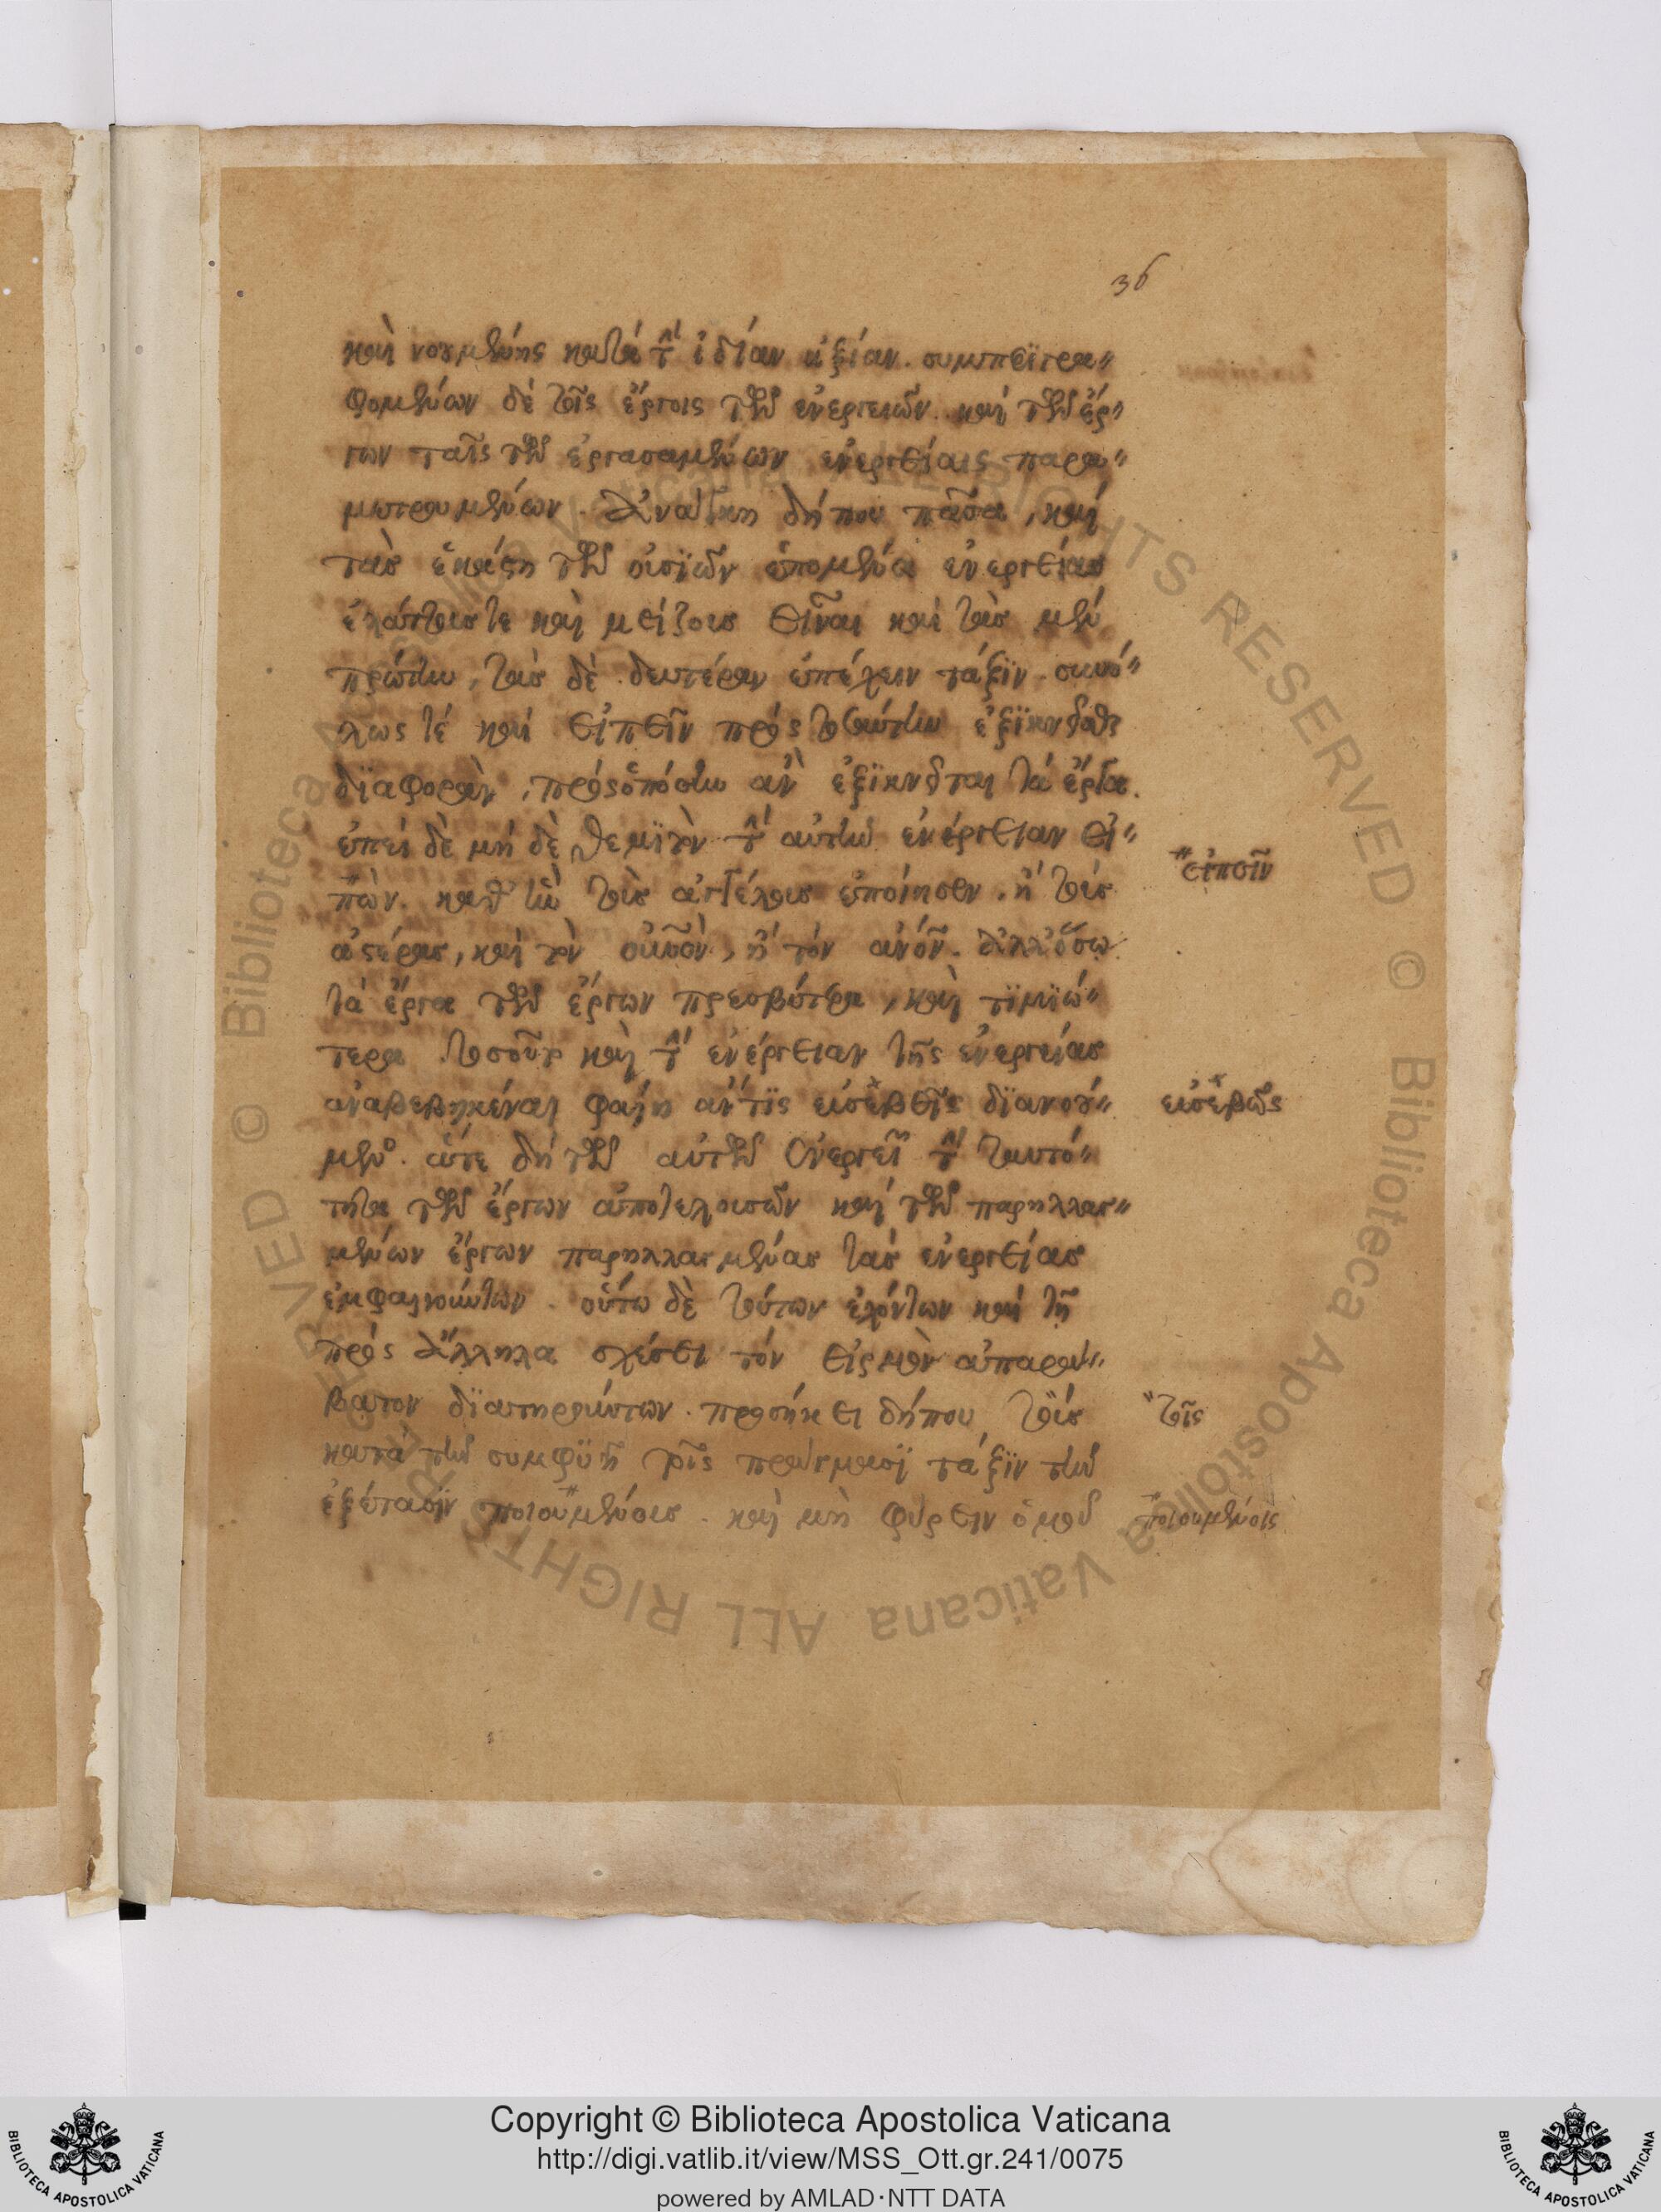 36
καὶ νουμένης κατὰ τὴν ἰδίαν ἀξίαν. συμπεριγρα"
φομένων δὲ τοῖς ἔργοις τῶν ἐνεργειῶν. καὶ τῶν ἔρ"
γων ταῖς τῶν ἐργασαμένων ἐνεργείαις παρα"
μετρουμένων. Ἀνάγκη δήπου πᾶσα, καὶ
τὰς ἑκάστη τῶν οὐσιῶν ἑπομένας ἐνεργείας
ἐλάττους τε καὶ μείζους εἶναι καὶ τὰς μὲν
πρώτην, τὰς δὲ δευτέραν ἐπέχειν τάξϊν. συνό"
λως τέ καὶ εἰπεῖν πρὸς τοσαύτην ἐξϊκνεῖσθαι
δϊαφορὰν, πρὸς ὁπόσην ἂν ἐξϊκνεῖται τὰ ἔργα.
ἐπεὶ δὲ μὴ δὲ θεμϊτὸν τὴν αὐτὴν ἐνέργειαν εἰ"
πὼν. καθ' ἣν τοὺς ἀγγέλους ἐποίησεν, ἢ τοὺς
ἀστέρας, καὶ τὸν οὐνὸν, ἢ τὸν ἀνὸν. ἀλλ' ὅσω
τὰ ἔργα τῶν ἔργων πρεσβύτερα, καὶ τϊμϊώ"
τερα τοσοῦτ καὶ τὴν ἐνέργειαν τῆς ἐνεργείας
ἀναβεβηκέναι φαίη ἄν τϊς εὐσεβεῖς δϊανού"
μενος. ἅτε δὴ τῶν αὐτῶν ἐνεργειῶν τὴν ταυτό"
τητα τῶν ἔργων ἀποτελουσῶν καὶ τῶν παρηλλαγ"
μένων ἔργων παρηλλαγμένας τὰς ἐνεργείας
ἐμφαινόντων. οὕτω δὲ τούτων ἐχόντων καὶ τῇ
πρὸς ἄλληλα σχέσει τὸν εἱρμὸν ἀπαρά"
βατον δϊατηρούντων. προσήκει δήπου τοὺς
κατὰ τὴν συμφϋῆ τοῖς πράγμασϊ τάξϊν τὴν
ἐξέτασϊν ποιουμένους. καὶ μὴ φύρειν ὁμοῦ
εἰπεῖν
εὐσεβῶς
τοῖς
ποιουμένοις
Copyright © Biblioteca Apostolica Vaticana
http://digi.vatlib.it/view/MSS_Ott.gr.241/0075
powered by AMLAD·NTT DATA
BIBLIOTECA APOSTOLICA VATICANA
BIBLIOTECA APOSTOLICA VATICANA
© Biblioteca Apostolica Vaticana ALL RIGHTS RESERVED © Biblioteca Apostolica Vaticana ALL RIGHTS RESERVED